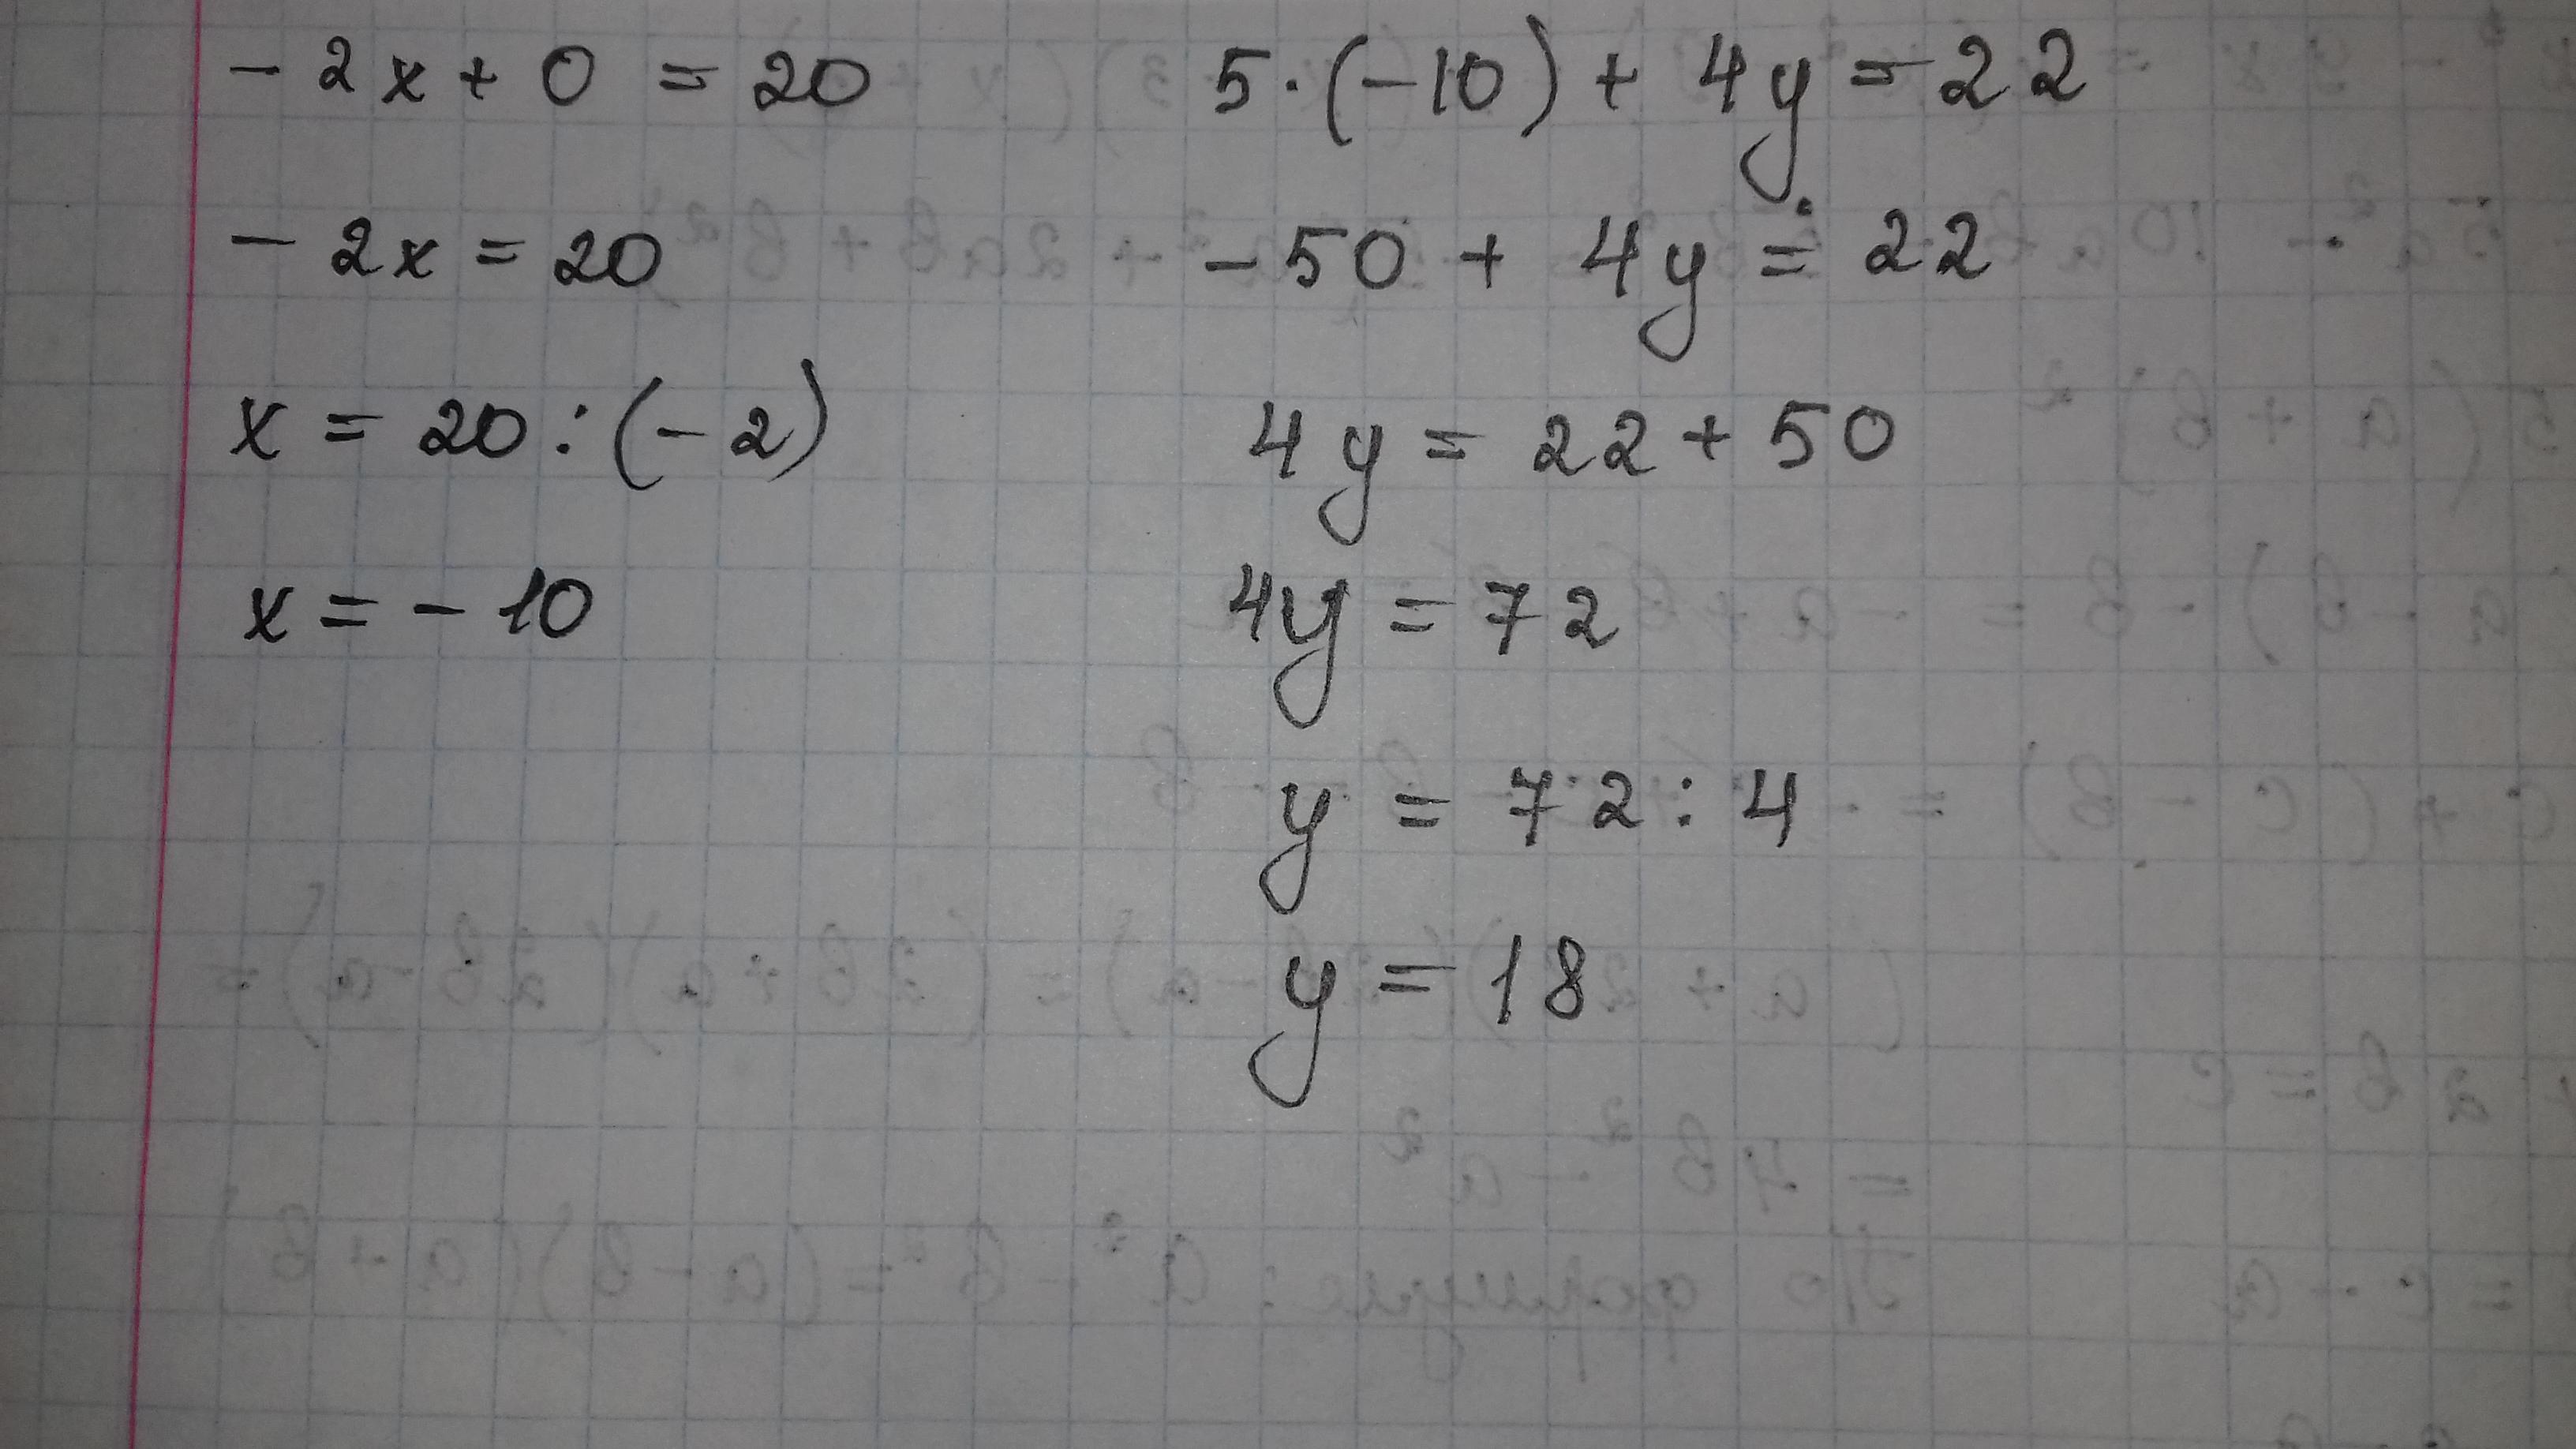 - 2x + 0 = 20
- 2x = 20
x = 20 : (- 2)
x = - 10
5 · (-10) + 4y = 22
- 50 + 4y = 22
4y = 22 + 50
4y = 72
y = 72 : 4
y = 18